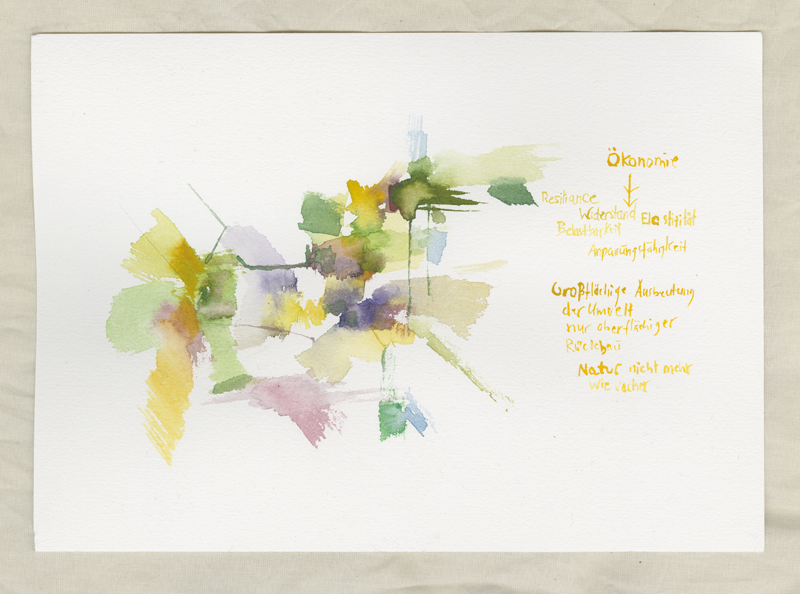 Ökonomie
Resiliance
Widerstand Elastizität
Belastbarkeit
Anpassungsfähigkeit
Großflächige Ausbeutung
der Umwelt
nur oberflächiger
Rückbau
Natur nicht mehr
wie vorher